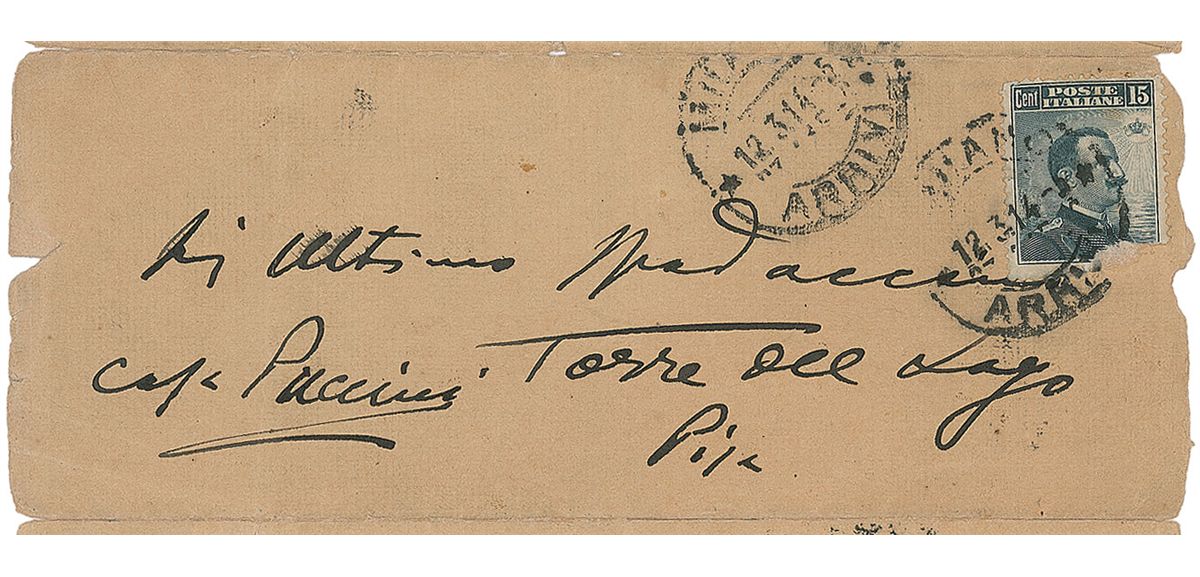 Cent POSTE ITALIANE 15
MIL
12.3.14
ARRIVI
MILANO
12.3.14
ARRIVI
Sig Ultimo Spadaccini
casa Puccini Torre del Lago
Pisa